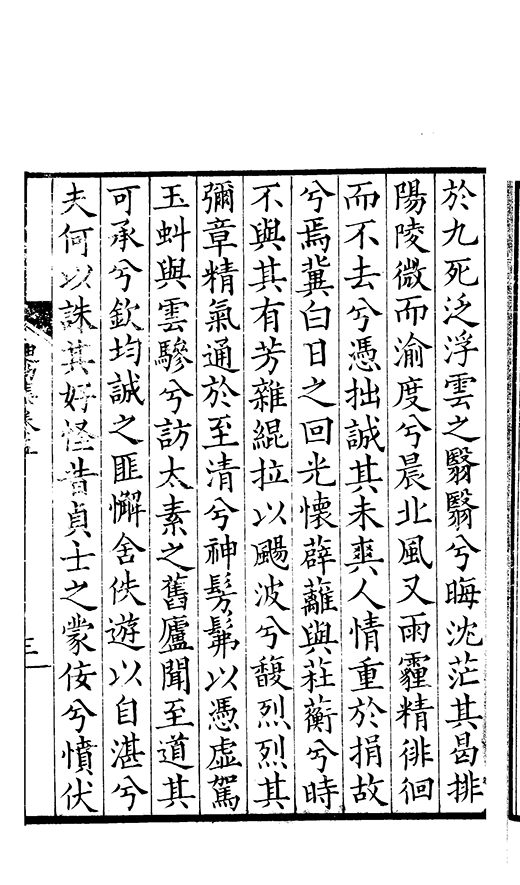 於九死泛浮雲之翳翳兮晦沈茫其曷排
陽陵微而渝度兮晨北風又雨霾精徘徊
而不去兮憑拙誠其未爽人情重於捐故
兮焉冀白日之回光懷薜蘺與荘蘅兮時
不與其有芳雜緄拉以颺波兮馥烈烈其
彌章精氣通於至清兮神髣髴以憑虛駕
玉虯與雲驂兮訪太素之舊廬聞至道其
可承兮欽均誠之匪懈舍佚遊以自湛兮
夫何以誅其好怪昔貞士之蒙佞兮憤伏
三